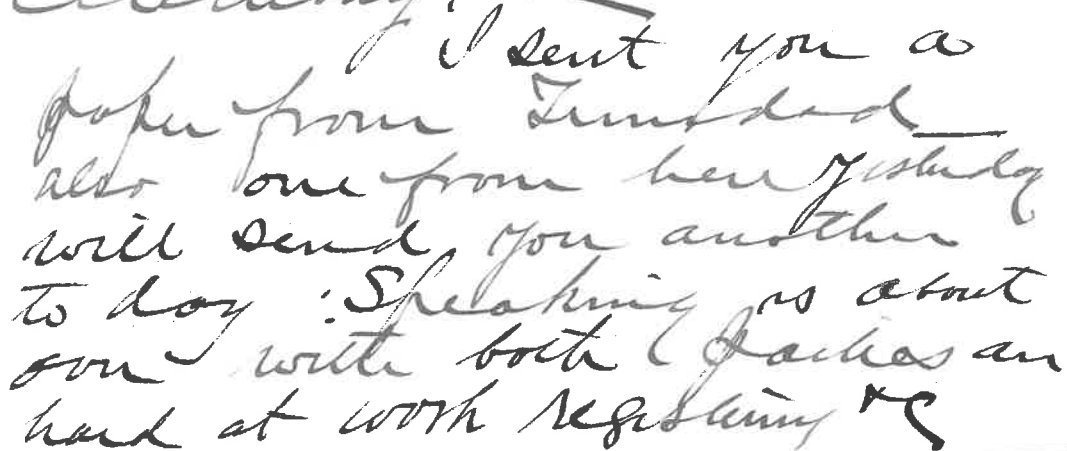 I sent you a
paper from Trinidad
also one from here yesterday
will send you another
to day. Speaking is about
over with both parties are
hard at work registering &c